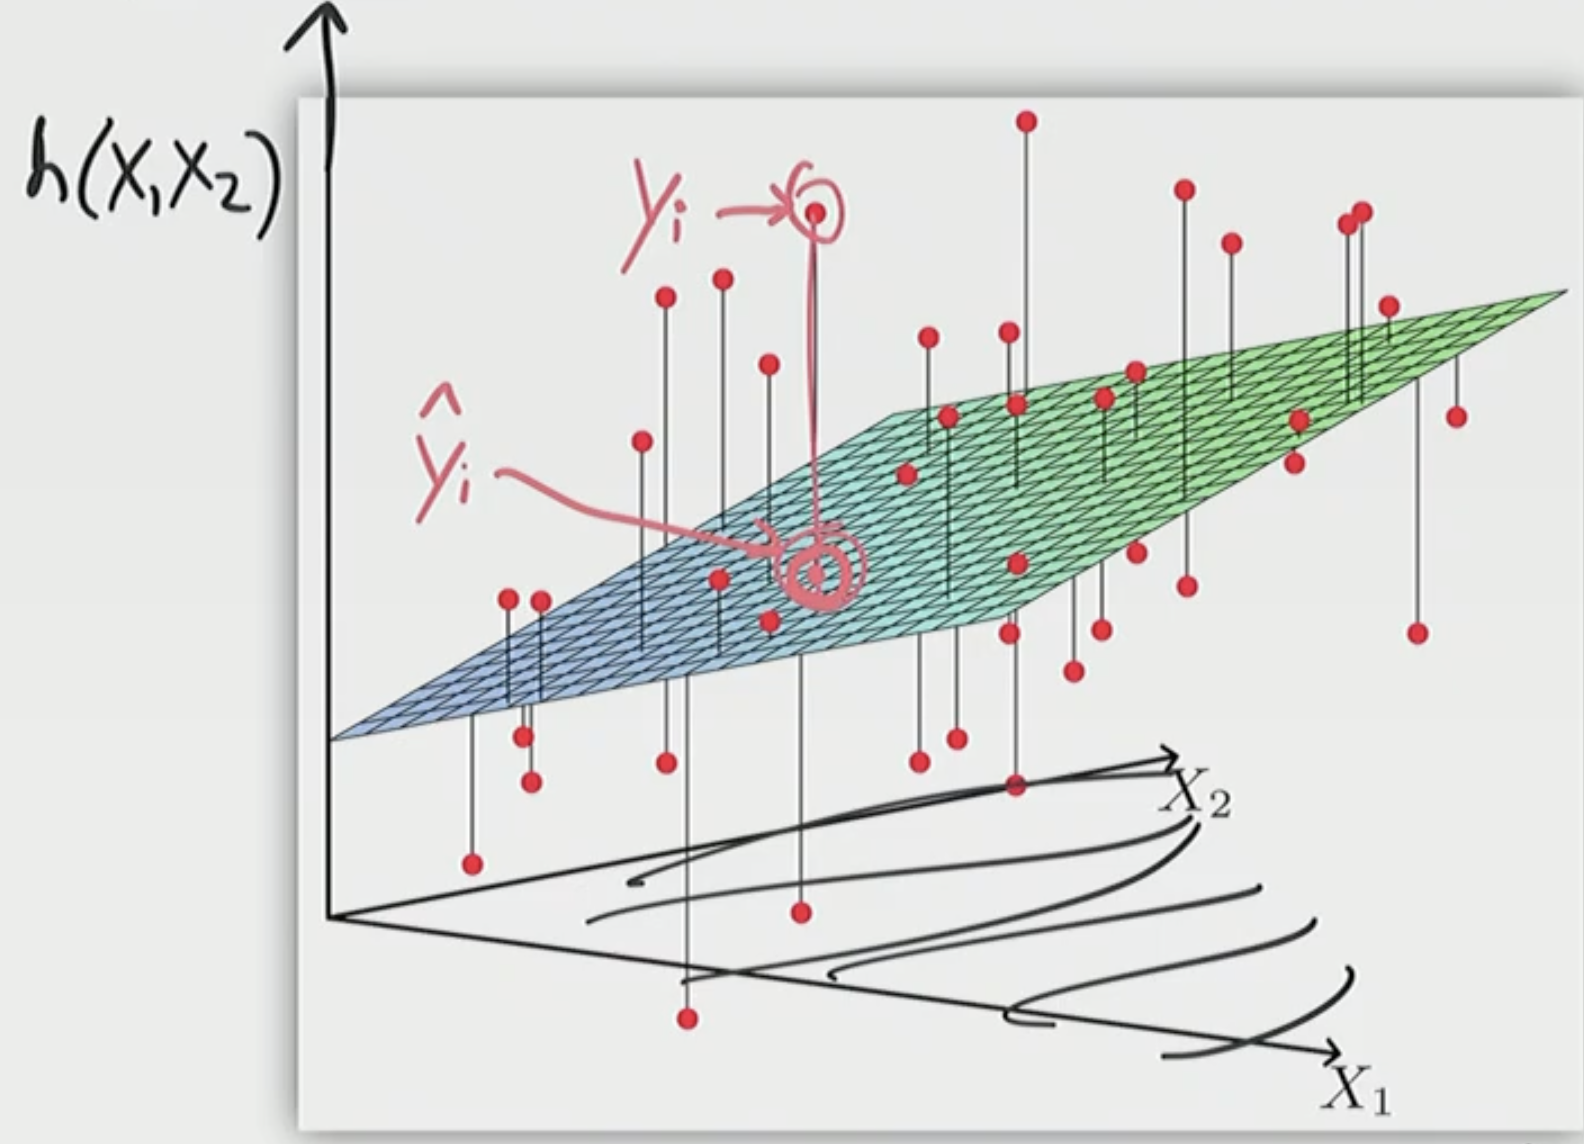 h(X₁X₂)
yᵢ
ŷᵢ
X₂
X₁